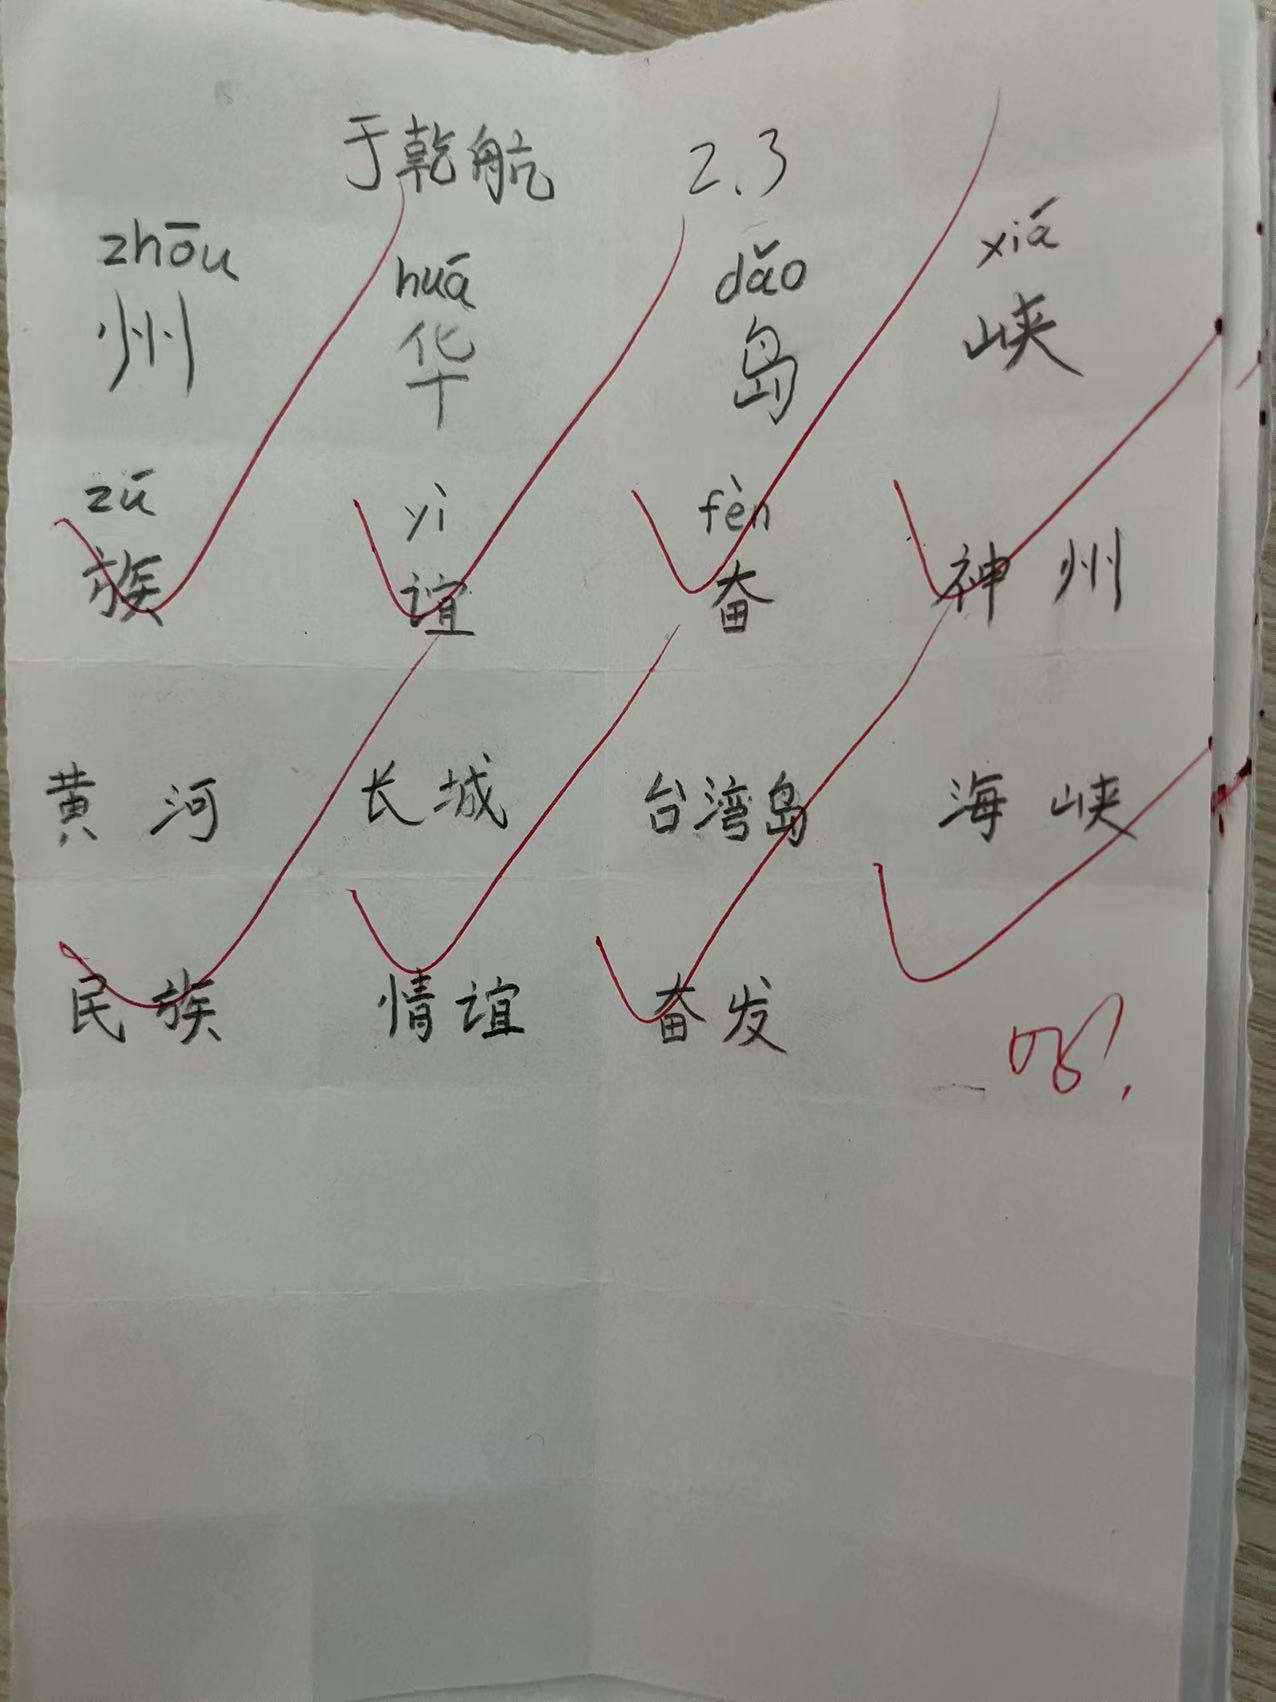 于乾航 2.3
zhōu huá dǎo xiá
州 华 岛 峡
zú yì fèn
族 谊 奋 神州
黄河 长城 台湾岛 海峡
民族 情谊 奋发